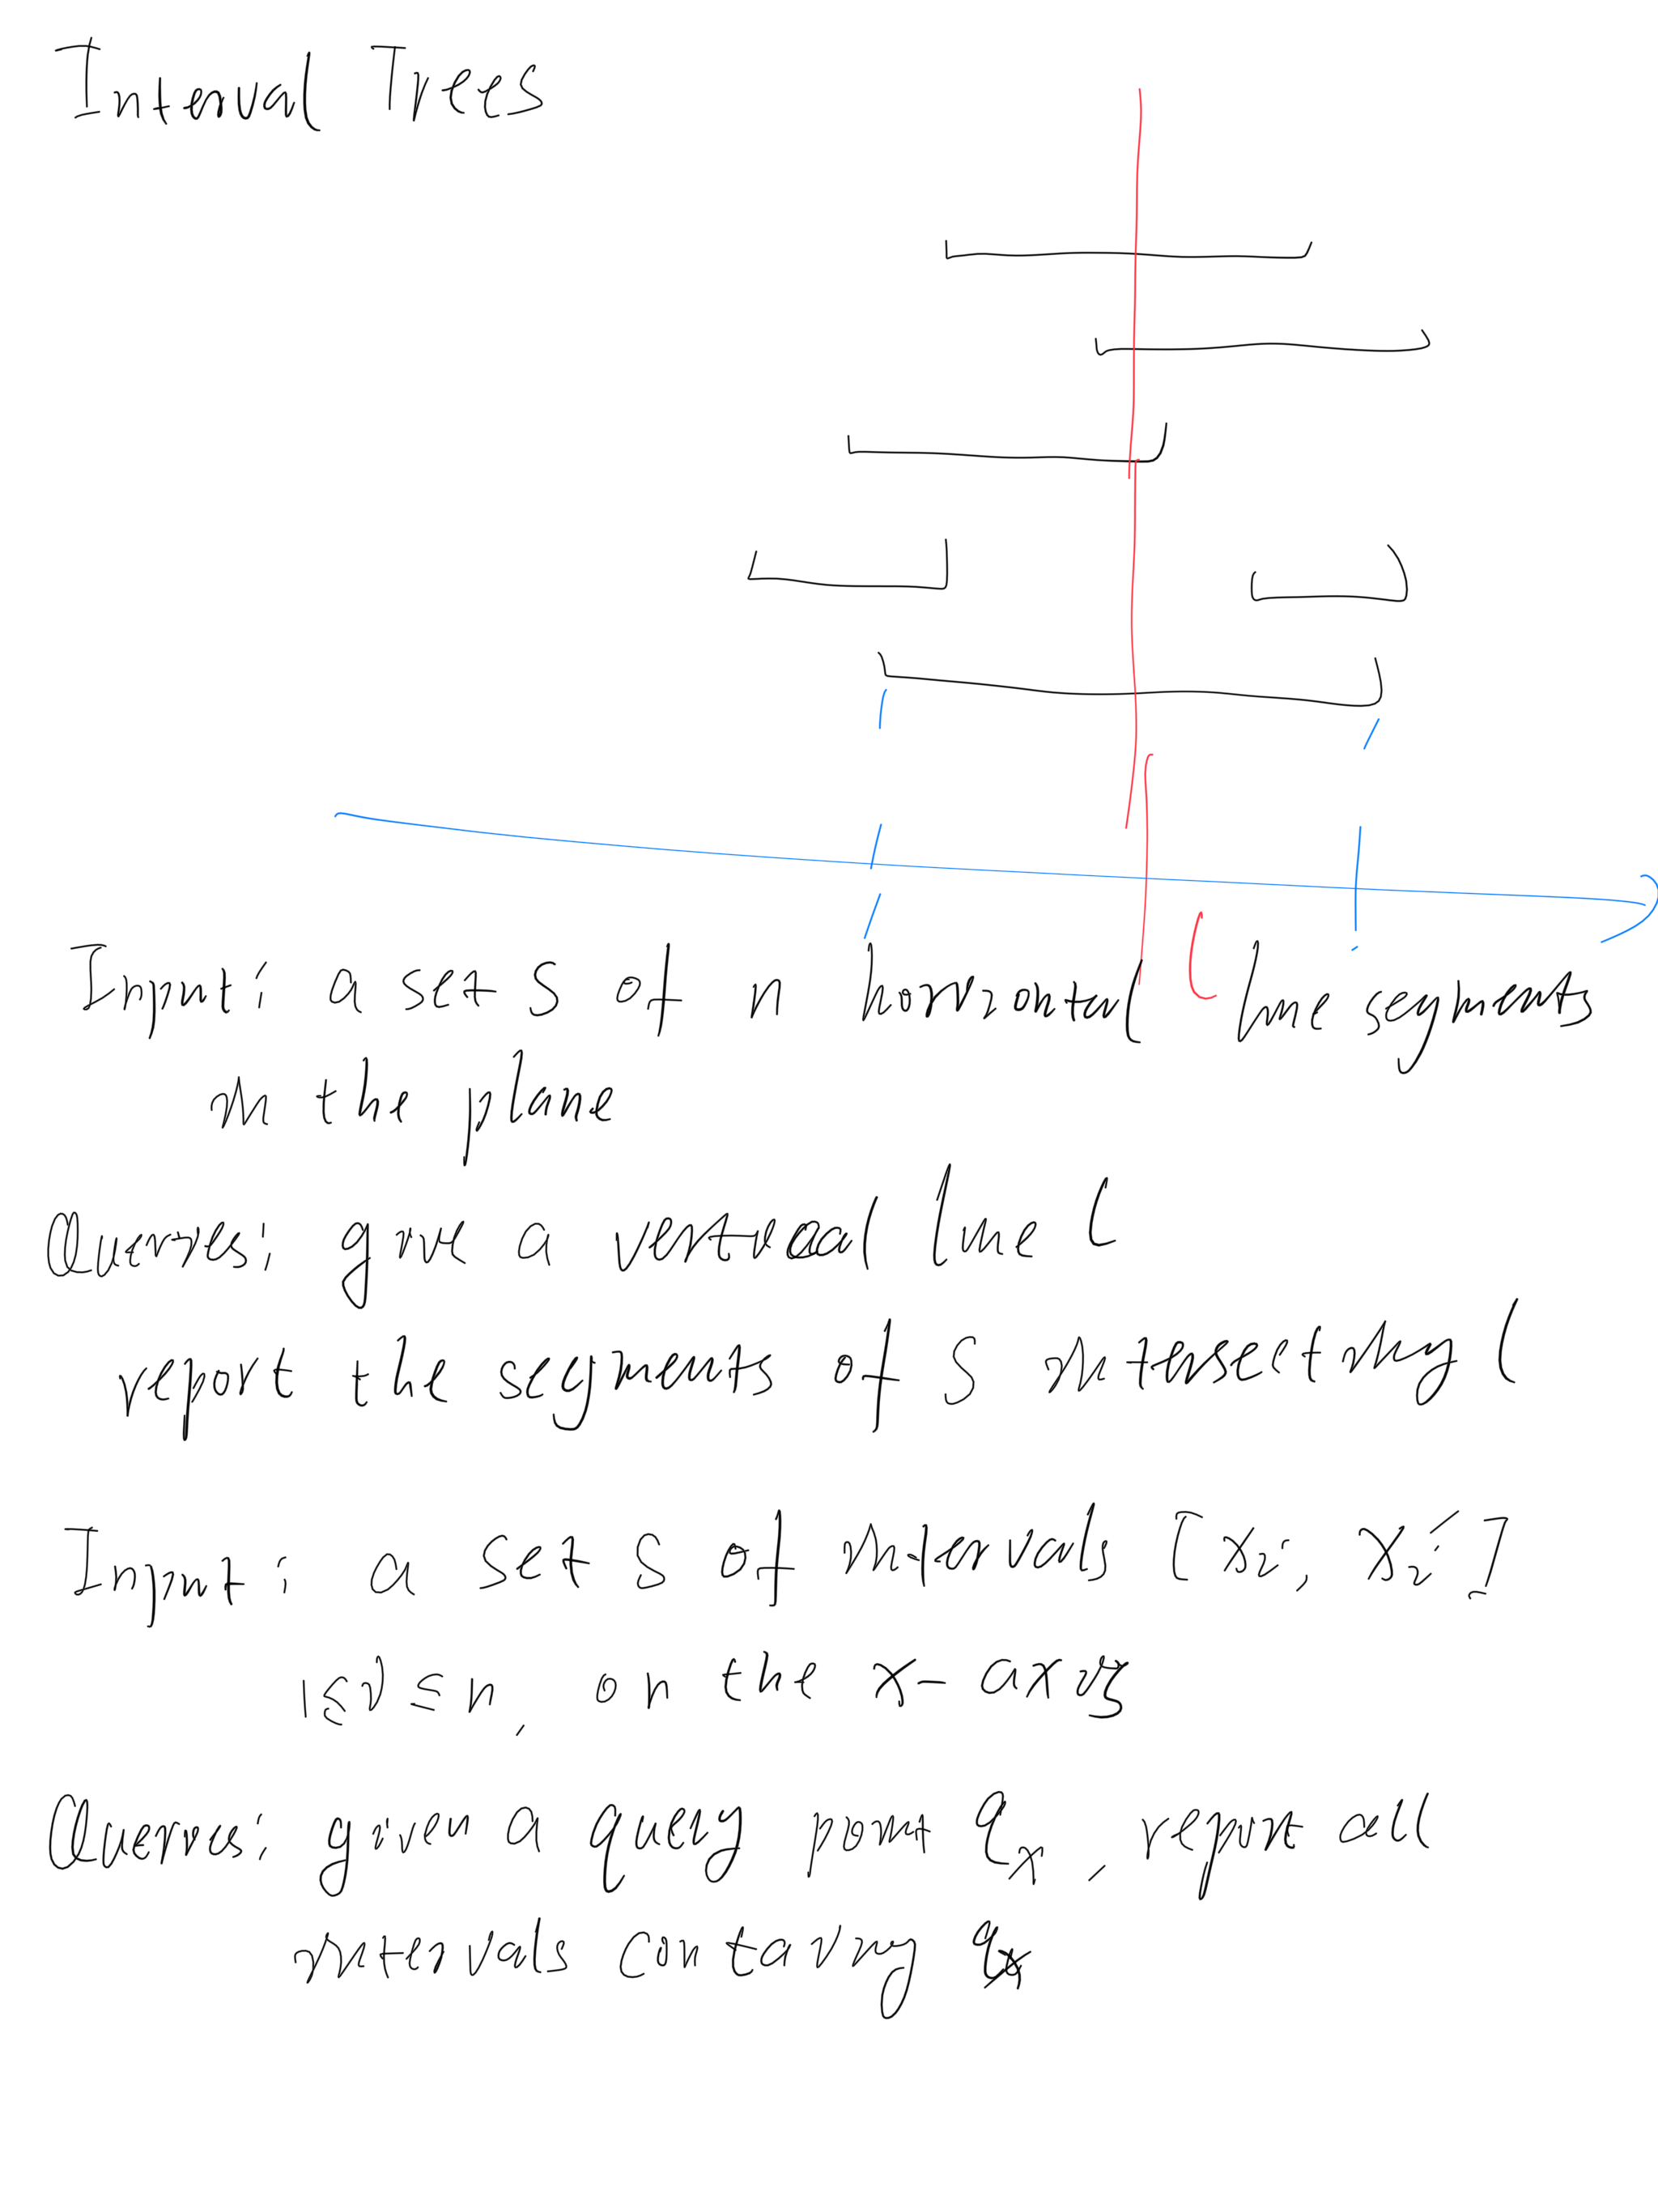 Interval Trees
l
Input: a set S of n horizontal line segments
in the plane
Queries: give a vertical line l
report the segments of S intersecting l
Input: a set S of intervals [xᵢ, xᵢ′]
1≤i≤n, on the x-axis
Queries: given a query point qₓ, report all
intervals containg qₓ